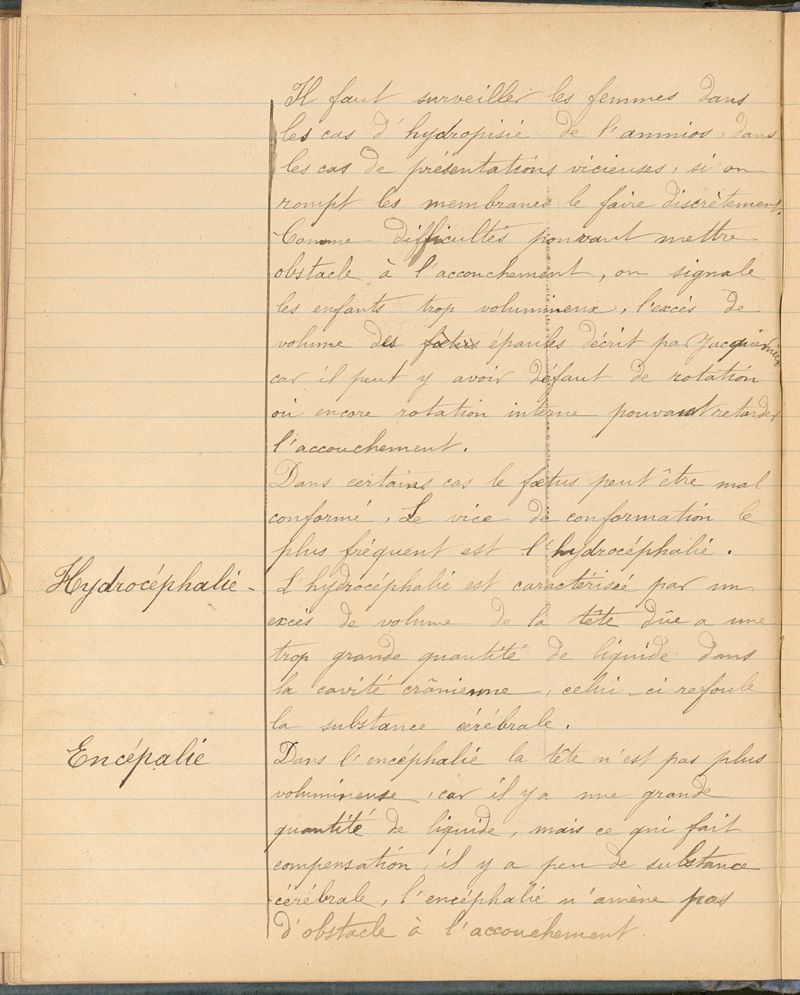 Il faut surveiller les femmes dans
les cas d'hydropisie de l'amnios, dans
les cas de présentations vicieuses, si on
rompt les membranes le faire discrètement.
Comme difficultés pouvant mettre
obstacle à l'accouchement, on signale
les enfants trop volumineux, l'excès de
volume des foetus épaules décrit par Jacquemier
car il peut y avoir défaut de rotation
ou encore rotation interne pouvant retarder
l'accouchement.
Dans certains cas le foetus peut être mal
conformé, Le vice de conformation le
plus fréquent est l'hydrocéphalie.
Hydrocéphalie - L'hydrocéphalie est caractérisée par un
excès de volume de la tête dûe a une
trop grande quantité de liquide dans
la cavité crânienne, celui-ci refoule
la substance cérébrale.
Encépalie Dans l'encéphalie la tête n'est pas plus
volumineuse, car il y a une grande
quantité de liquide, mais ce qui fait
compensation, il y a peu de substance
cérébrale, l'encéphalie n'amène pas
d'obstacle à l'accouchement.